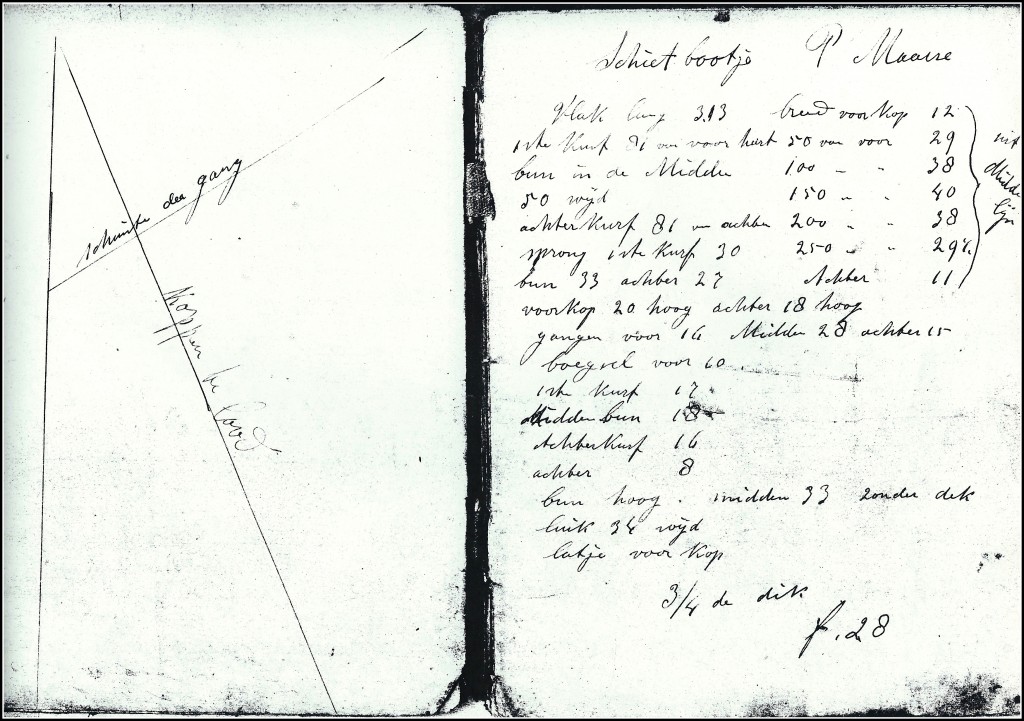 schuinte der gang
Koppen
Schietbootje P Maarse
Vlak lang 3.13 breed voor Kop 12
1ste Kurf 81 van voor hart 50 van voor 29
bun in de Midden 100 „ „ 38
50 wijd 150 „ „ 40
achter Kurf 81 van achter 200 „ „ 38
sprong 1ste Kurf 30 250 „ „ 29½
bun 33 achter 27 Achter 11
uit Midde lijn
voorkop 20 hoog achter 18 hoog
gangen voor 16 Midden 28 achter 15
boegsel voor 10.
1ste Kurf 17
Midden bun 18
Achter Kurf 16
achter 8
bun hoog. midden 33 zonder dek
luik 34 wijd
latje voor Kop
3/4 de dik
f. 28